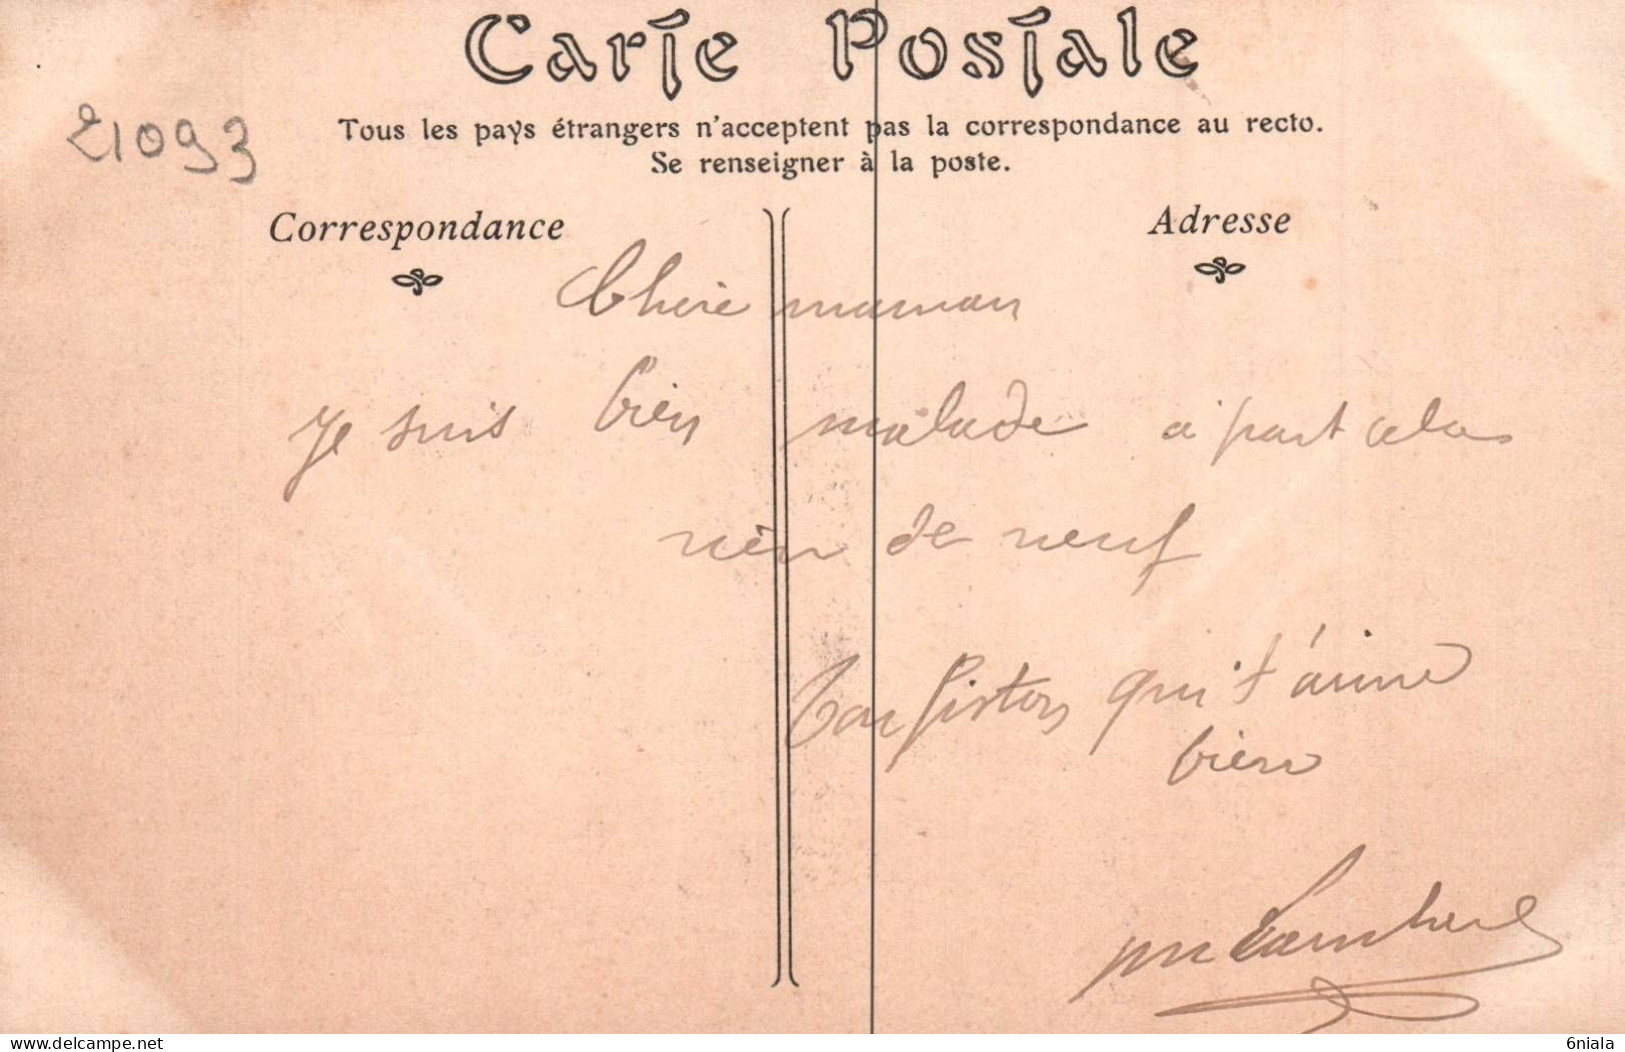 Carte Postale
Tous les pays étrangers n'acceptent pas la correspondance au recto.
Se renseigner à la poste.
21093
Correspondance
Adresse
Chère maman
Je suis bien malade à part cela
rien de neuf
Ton fiston qui t'aime
bien
www.delcampe.net
6niala